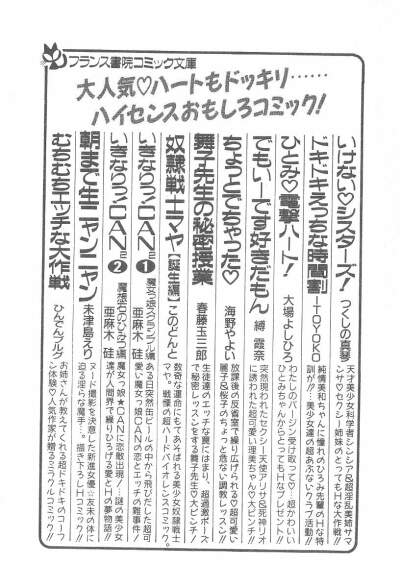 フランス書院コミック文庫
大人気♡ハートもドッキリ……
ハイセンスおもしろコミック!
いけない♡シスターズ! つくしの真琴
天才美少女科学者シンシア&超淫乱美姉サマ
ンサ♡セクシー姉妹のとってもH大作戦!
ドキドキえっちな時間割 ーTOYOKO
純情美和ちゃんに憧れのひろみ先輩のHな特
訓が!!美少女達の超あぶないクラブ活動!!
ひとみ♡電撃ハート! 大場よしひろ
わたしのバージン受け取って♡ 超かわいい
ひとみちゃんからとってもHなプレゼント!!
でもいーです好きだもん 縛 霞奈
突然現われたセクシー天使アリサ&死神リオ
に誘われた超可愛い理美ちゃん♡大ピンチ!!
ちょっとでちゃった♡ 海野やよい
放課後の反省室で繰り広げられる♡超可愛い
麗子&桜子のちょっと危ない調教レッスン!
舞子先生の秘密授業 春藤玉三郎
生徒達のエッチな罠にはまり、超過激ポーズ
で秘密レッスンをする舞子先生♡大ピンチ!
奴隷戦士マヤ【誕生編】 このどんと
数奇な運命にもてあそばれる美少女奴隷戦士
マヤ。戦慄の超ハードバイオレンスコミック。
いきなりっ!CAN① 魔女っ娘スクランブル編 亜麻木 硅
ある日突然缶ビールの中から飛びだした超可
愛い魔女っ娘CANの恋とエッチの難事件!
いきなりっ!CAN② 魔想石のひみつ編 亜麻木 硅
魔女っ娘★CANに恋敵出現! 謎の美少女
達が人間界で繰りひろげる愛とHの夢物語!!
朝まで生ニャンニャン 未津島えり
ヌード撮影を決意した新進女優☆友未の体に
迫る淫らな魔手…。描き下ろしHコミック!!
むちむちエッチな大作戦 ひんでんブルグ
お姉さんが教えてくれる超ドキドキのコーフ
ン体験♡人気作家が贈るミラクルコミック!!